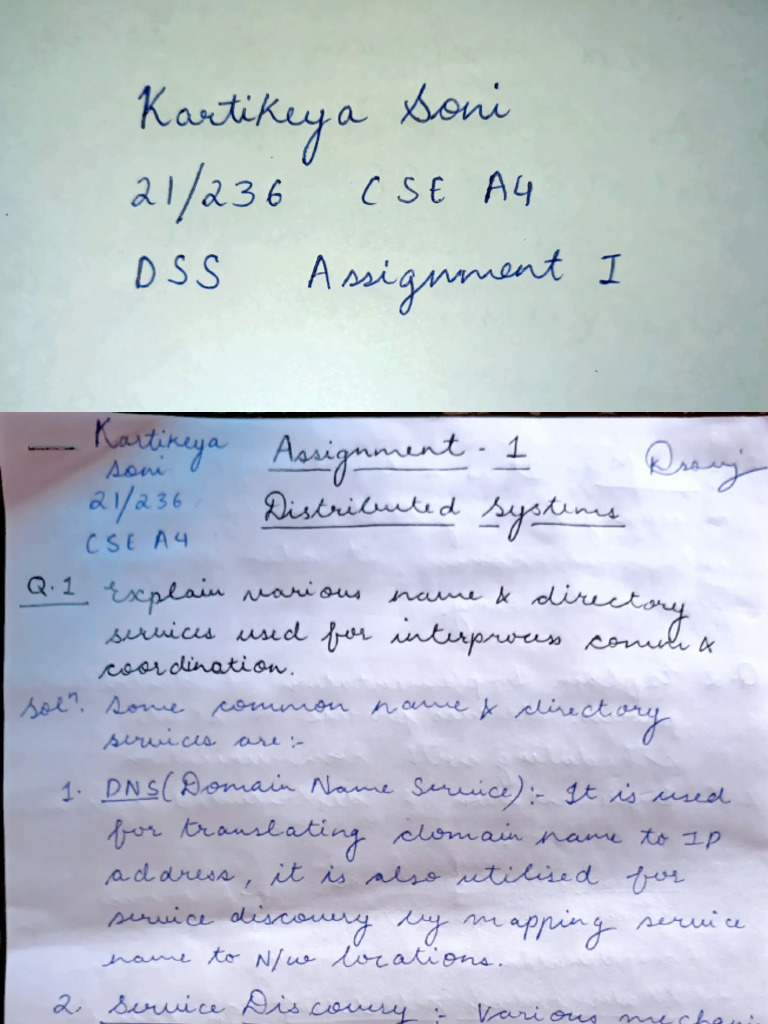 Kartikeya Soni
21/236 CSE A4
DSS Assignment I
Kartikeya
Soni
21/236
CSE A4
Assignment - 1
Distributed Systems
Q.1 Explain various name & directory
services used for interprocess comm &
coordination.
Solⁿ. Some common name & directory
services are :-
1. DNS (Domain Name Service) :- It is used
for translating domain name to IP
address, it is also utilised for
service discovery by mapping service
name to N/w locations.
2. Service Discovery :- Various